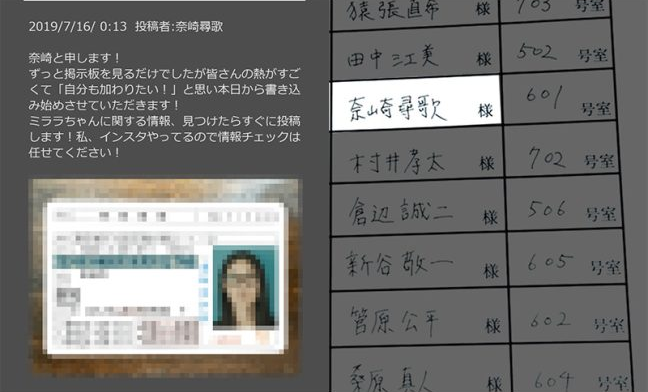 2019/7/16/ 0:13 投稿者:奈崎尋歌
奈崎と申します！
ずっと掲示板を見るだけでしたが皆さんの熱がすご
くて「自分も加わりたい！」と思い本日から書き込
み始めさせていただきます！
ミララちゃんに関する情報、見つけたらすぐに投稿
します！私、インスタやってるので情報チェックは
任せてください！
様 703 号室
田中三江美 様 502 号室
奈崎尋歌 様 601 号室
村井孝太 様 702 号室
倉辺誠二 様 506 号室
新谷敬一 様 605 号室
菅原公平 様 602 号室
桑原真人 様 604 号室